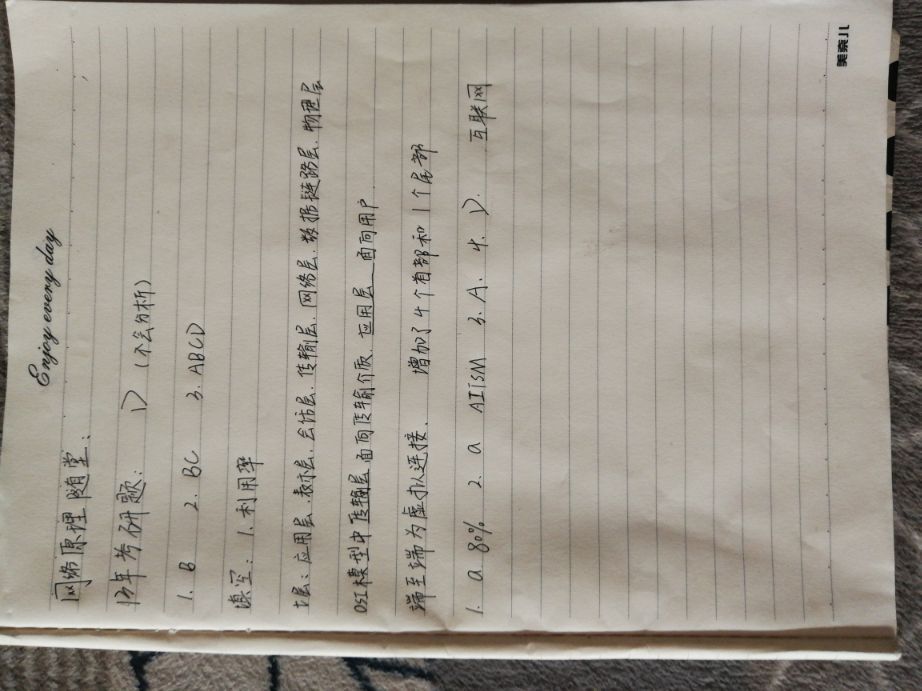 Enjoy every day
网络原理随堂：
13年考研题： D （不会分析）
1. B 2. BC 3. ABCD
填空：1. 利用率
七层：应用层、表示层、会话层、传输层、网络层、数据链路层、物理层
OSI模型中传输层面向传输介质，应用层面向用户.
端至端为虚拟连接. 增加了4个首部和1个尾部
1. a 80% 2. a AIISM 3. A. 4. D. 互联网
美桑儿